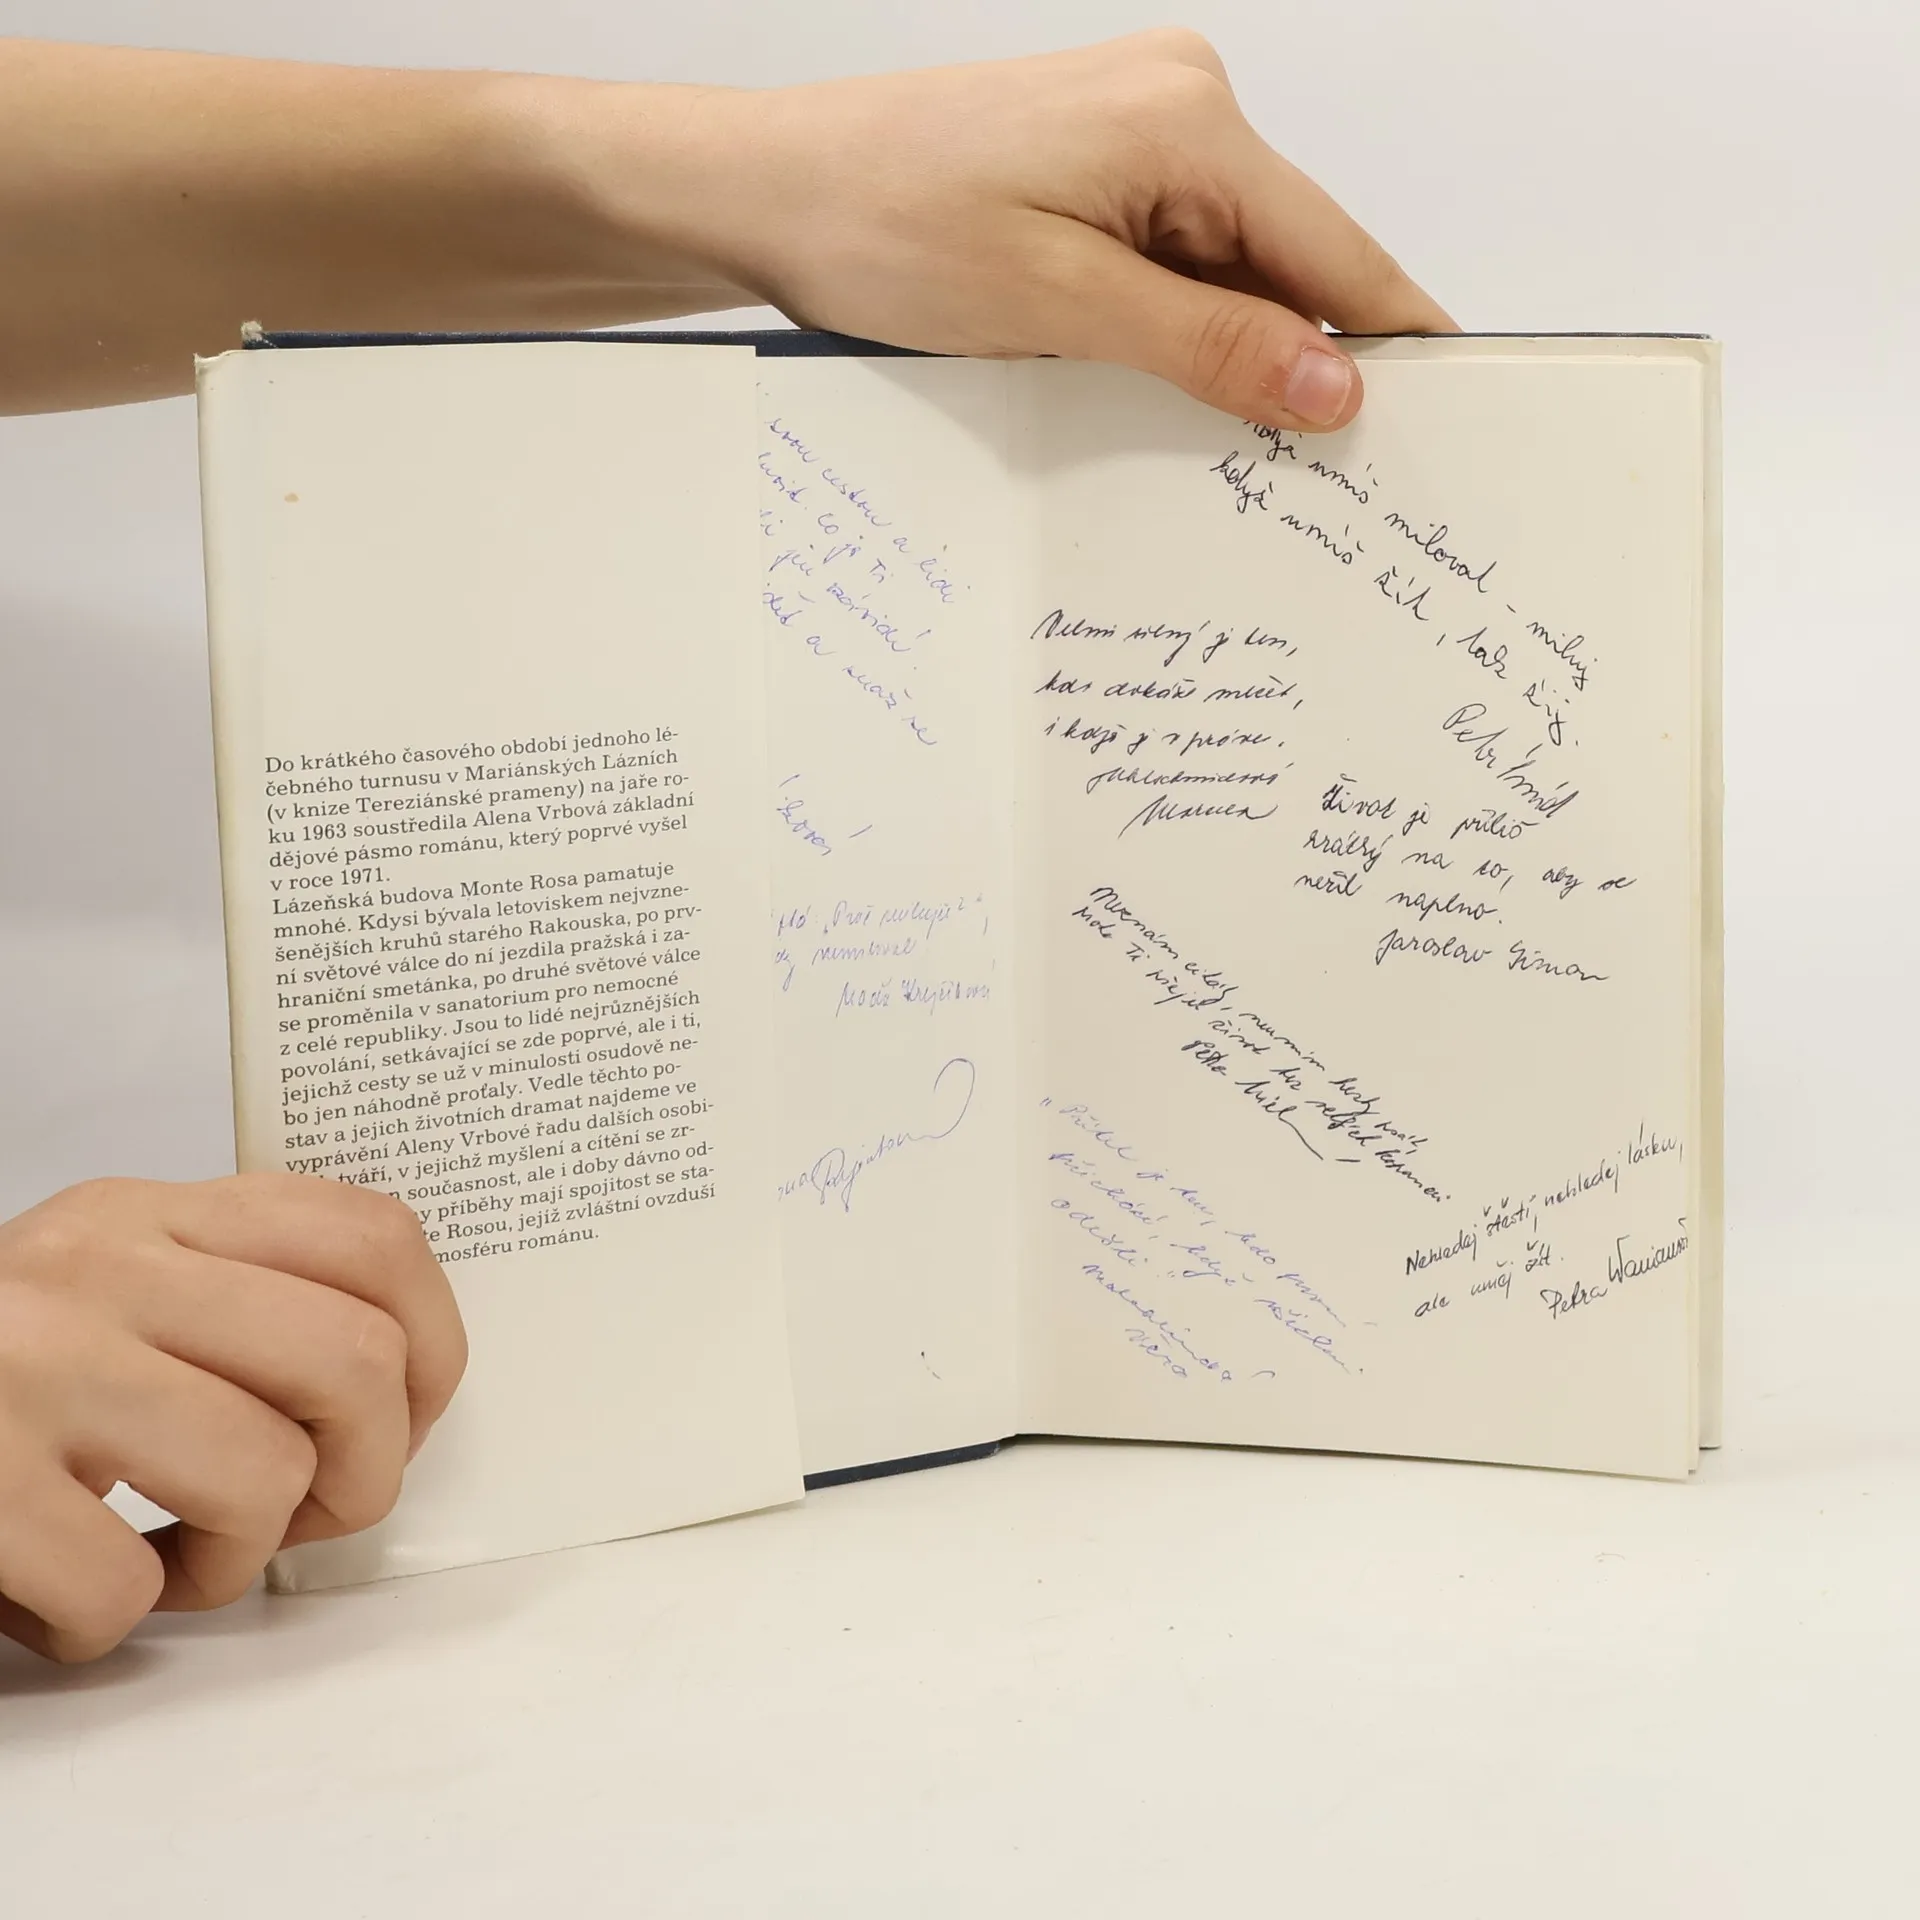 Do krátkého časového období jednoho lé-
čebného turnusu v Mariánských Lázních
(v knize Tereziánské prameny) na jaře ro-
ku 1963 soustředila Alena Vrbová základní
dějové pásmo románu, který poprvé vyšel
v roce 1971.
Lázeňská budova Monte Rosa pamatuje
mnohé. Kdysi bývala letoviskem nejvzne-
šenějších kruhů starého Rakouska, po prv-
ní světové válce do ní jezdila pražská i za-
hraniční smetánka, po druhé světové válce
se proměnila v sanatorium pro nemocné
z celé republiky. Jsou to lidé nejrůznějších
povolání, setkávající se zde poprvé, ale i ti,
jejichž cesty se už v minulosti osudově ne-
bo jen náhodně proťaly. Vedle těchto po-
stav a jejich životních dramat najdeme ve
vyprávění Aleny Vrbové řadu dalších osobi-
tváří, v jejichž myšlení a cítění se zr-
současnost, ale i doby dávno od-
y příběhy mají spojitost se sta-
te Rosou, jejíž zvláštní ovzduší
mosféru románu.
svou cestou a lidi
co je Ti
jen závidí!
a snaž se
„Proč miluješ?“,
nemiloval
umíš milovat - miluj
když umíš žít, tak žij.
Petr
Velmi silný je ten,
kdo dokáže mlčet,
i když je v právu.
Život je příliš
krátký na to, aby se
nežil naplno.
Jaroslav Šimon
Neznám citáty, neumím hesla psát,
Ti přeji život bez velkých
Petr
"Přítel je ten, kdo
přichází, když všichni
odešli."
Věra
Nehledej štěstí, nehledej lásku,
ale uměj žít.
Petra